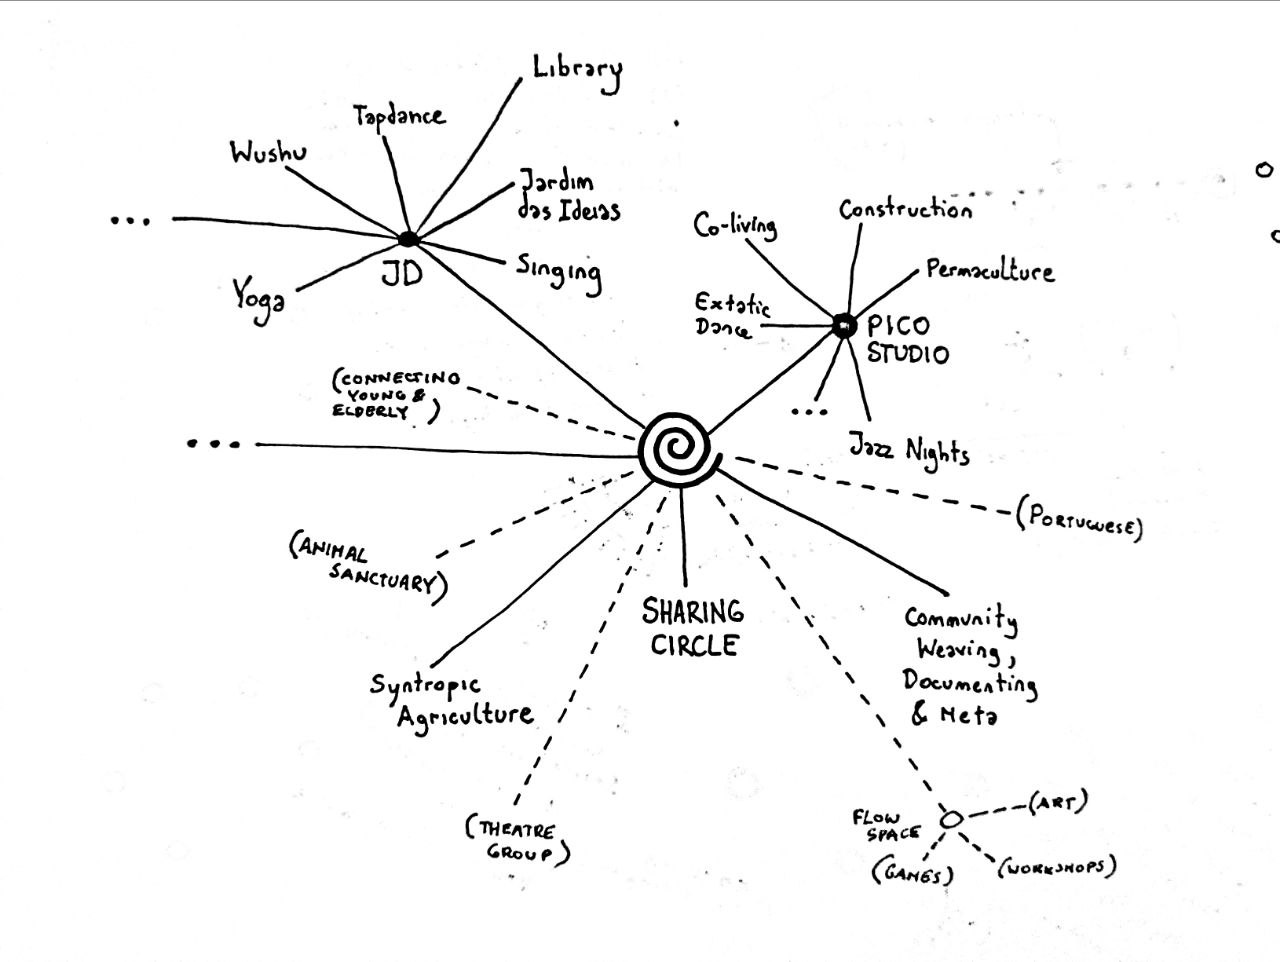 Library
Tapdance
Wushu
Jardim
das Ideias
...
Singing
JD
Yoga
Construction
Co-living
Permaculture
Extatic
Dance
PICO
STUDIO
...
Jazz Nights
(CONNECTING
YOUNG &
ELDERLY)
...
(PORTUGUESE)
(ANIMAL
SANCTUARY)
SHARING
CIRCLE
Community
Weaving,
Documenting
& Meta
Syntropic
Agriculture
(THEATRE
GROUP)
FLOW
SPACE
(ART)
(GAMES)
(WORKSHOPS)